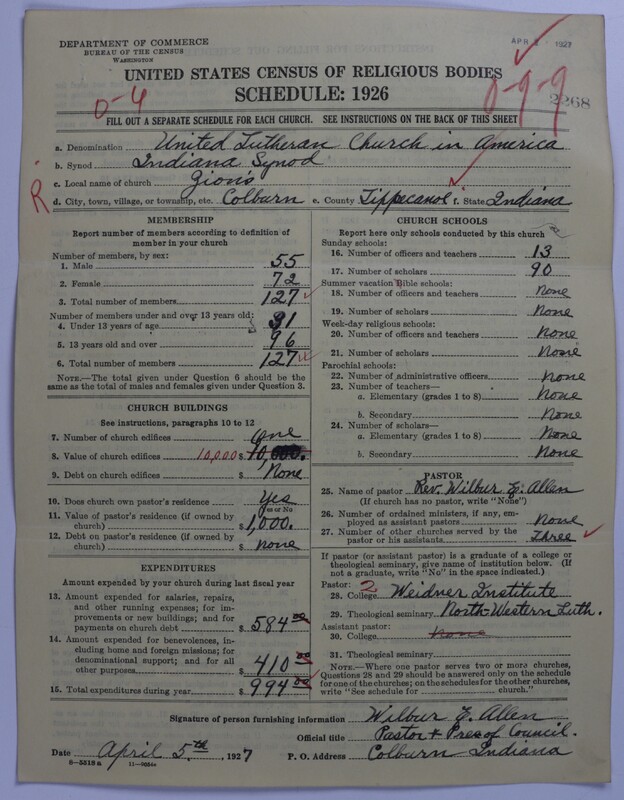 DEPARTMENT OF COMMERCE
BUREAU OF THE CENSUS
WASHINGTON
APR 1927
UNITED STATES CENSUS OF RELIGIOUS BODIES
SCHEDULE: 1926
0-4
8-9-9
2268
FILL OUT A SEPARATE SCHEDULE FOR EACH CHURCH. SEE INSTRUCTIONS ON THE BACK OF THIS SHEET
a. Denomination United Lutheran Church in America
b. Synod Indiana Synod
c. Local name of church Zion's
R
d. City, town, village, or township, etc. Colburn e. County Tippecanoe f. State Indiana
MEMBERSHIP
Report number of members according to definition of member in your church
Number of members, by sex:
1. Male 55
2. Female 72
3. Total number of members 127
Number of members under and over 13 years old:
4. Under 13 years of age 31
5. 13 years old and over 96
6. Total number of members 127
NOTE.—The total given under Question 6 should be
the same as the total of males and females given under Question 3.
CHURCH BUILDINGS
See instructions, paragraphs 10 to 12
7. Number of church edifices One
8. Value of church edifices 10,000 $ 10,000.
9. Debt on church edifices $ None
10. Does church own pastor's residence Yes
Yes or No
11. Value of pastor's residence (if owned by
church) $ 1,000.
12. Debt on pastor's residence (if owned by
church) $ none
EXPENDITURES
Amount expended by your church during last fiscal year
13. Amount expended for salaries, repairs,
and other running expenses; for im-
provements or new buildings; and for
payments on church debt $ 584 00
14. Amount expended for benevolences, in-
cluding home and foreign missions; for
denominational support; and for all
other purposes $ 410 00
15. Total expenditures during year $ 994 00
CHURCH SCHOOLS
Report here only schools conducted by this church
Sunday schools:
16. Number of officers and teachers 13
17. Number of scholars 90
Summer vacation Bible schools:
18. Number of officers and teachers None
19. Number of scholars None
Week-day religious schools:
20. Number of officers and teachers None
21. Number of scholars None
Parochial schools:
22. Number of administrative officers None
23. Number of teachers—
a. Elementary (grades 1 to 8) None
b. Secondary None
24. Number of scholars—
a. Elementary (grades 1 to 8) None
b. Secondary None
PASTOR
25. Name of pastor Rev. Wilbur E. Allen
(If church has no pastor, write "None")
26. Number of ordained ministers, if any, em-
ployed as assistant pastors None
27. Number of other churches served by the
pastor or his assistants Three
If pastor (or assistant pastor) is a graduate of a college or
theological seminary, give name of institution below. (If
not a graduate, write "No" in the space indicated.)
Pastor: 2
28. College Weidner Institute
29. Theological seminary North-Western Luth.
Assistant pastor:
30. College None
31. Theological seminary
NOTE.—Where one pastor serves two or more churches,
Questions 28 and 29 should be answered only on the schedule
for one of the churches; on the schedules for the other churches,
write "See schedule for church."
Signature of person furnishing information Wilbur E. Allen
Official title Pastor + Pres of Council.
Date April 5th, 1927 P. O. Address Colburn Indiana
8—5318 a 11—9554a